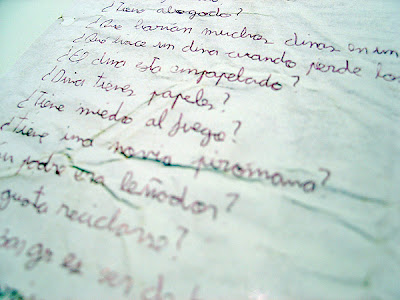 ¿Tiene abogado?
¿Que harían muchos divas en un
¿Que hace un diva cuando pierde los
¿El diva esta empapelado?
¿Diva tienes papeles?
¿Tiene miedo al fuego?
¿Tiene una novia piromana?
padre era leñador?
gusta reciclarse?
es ser de